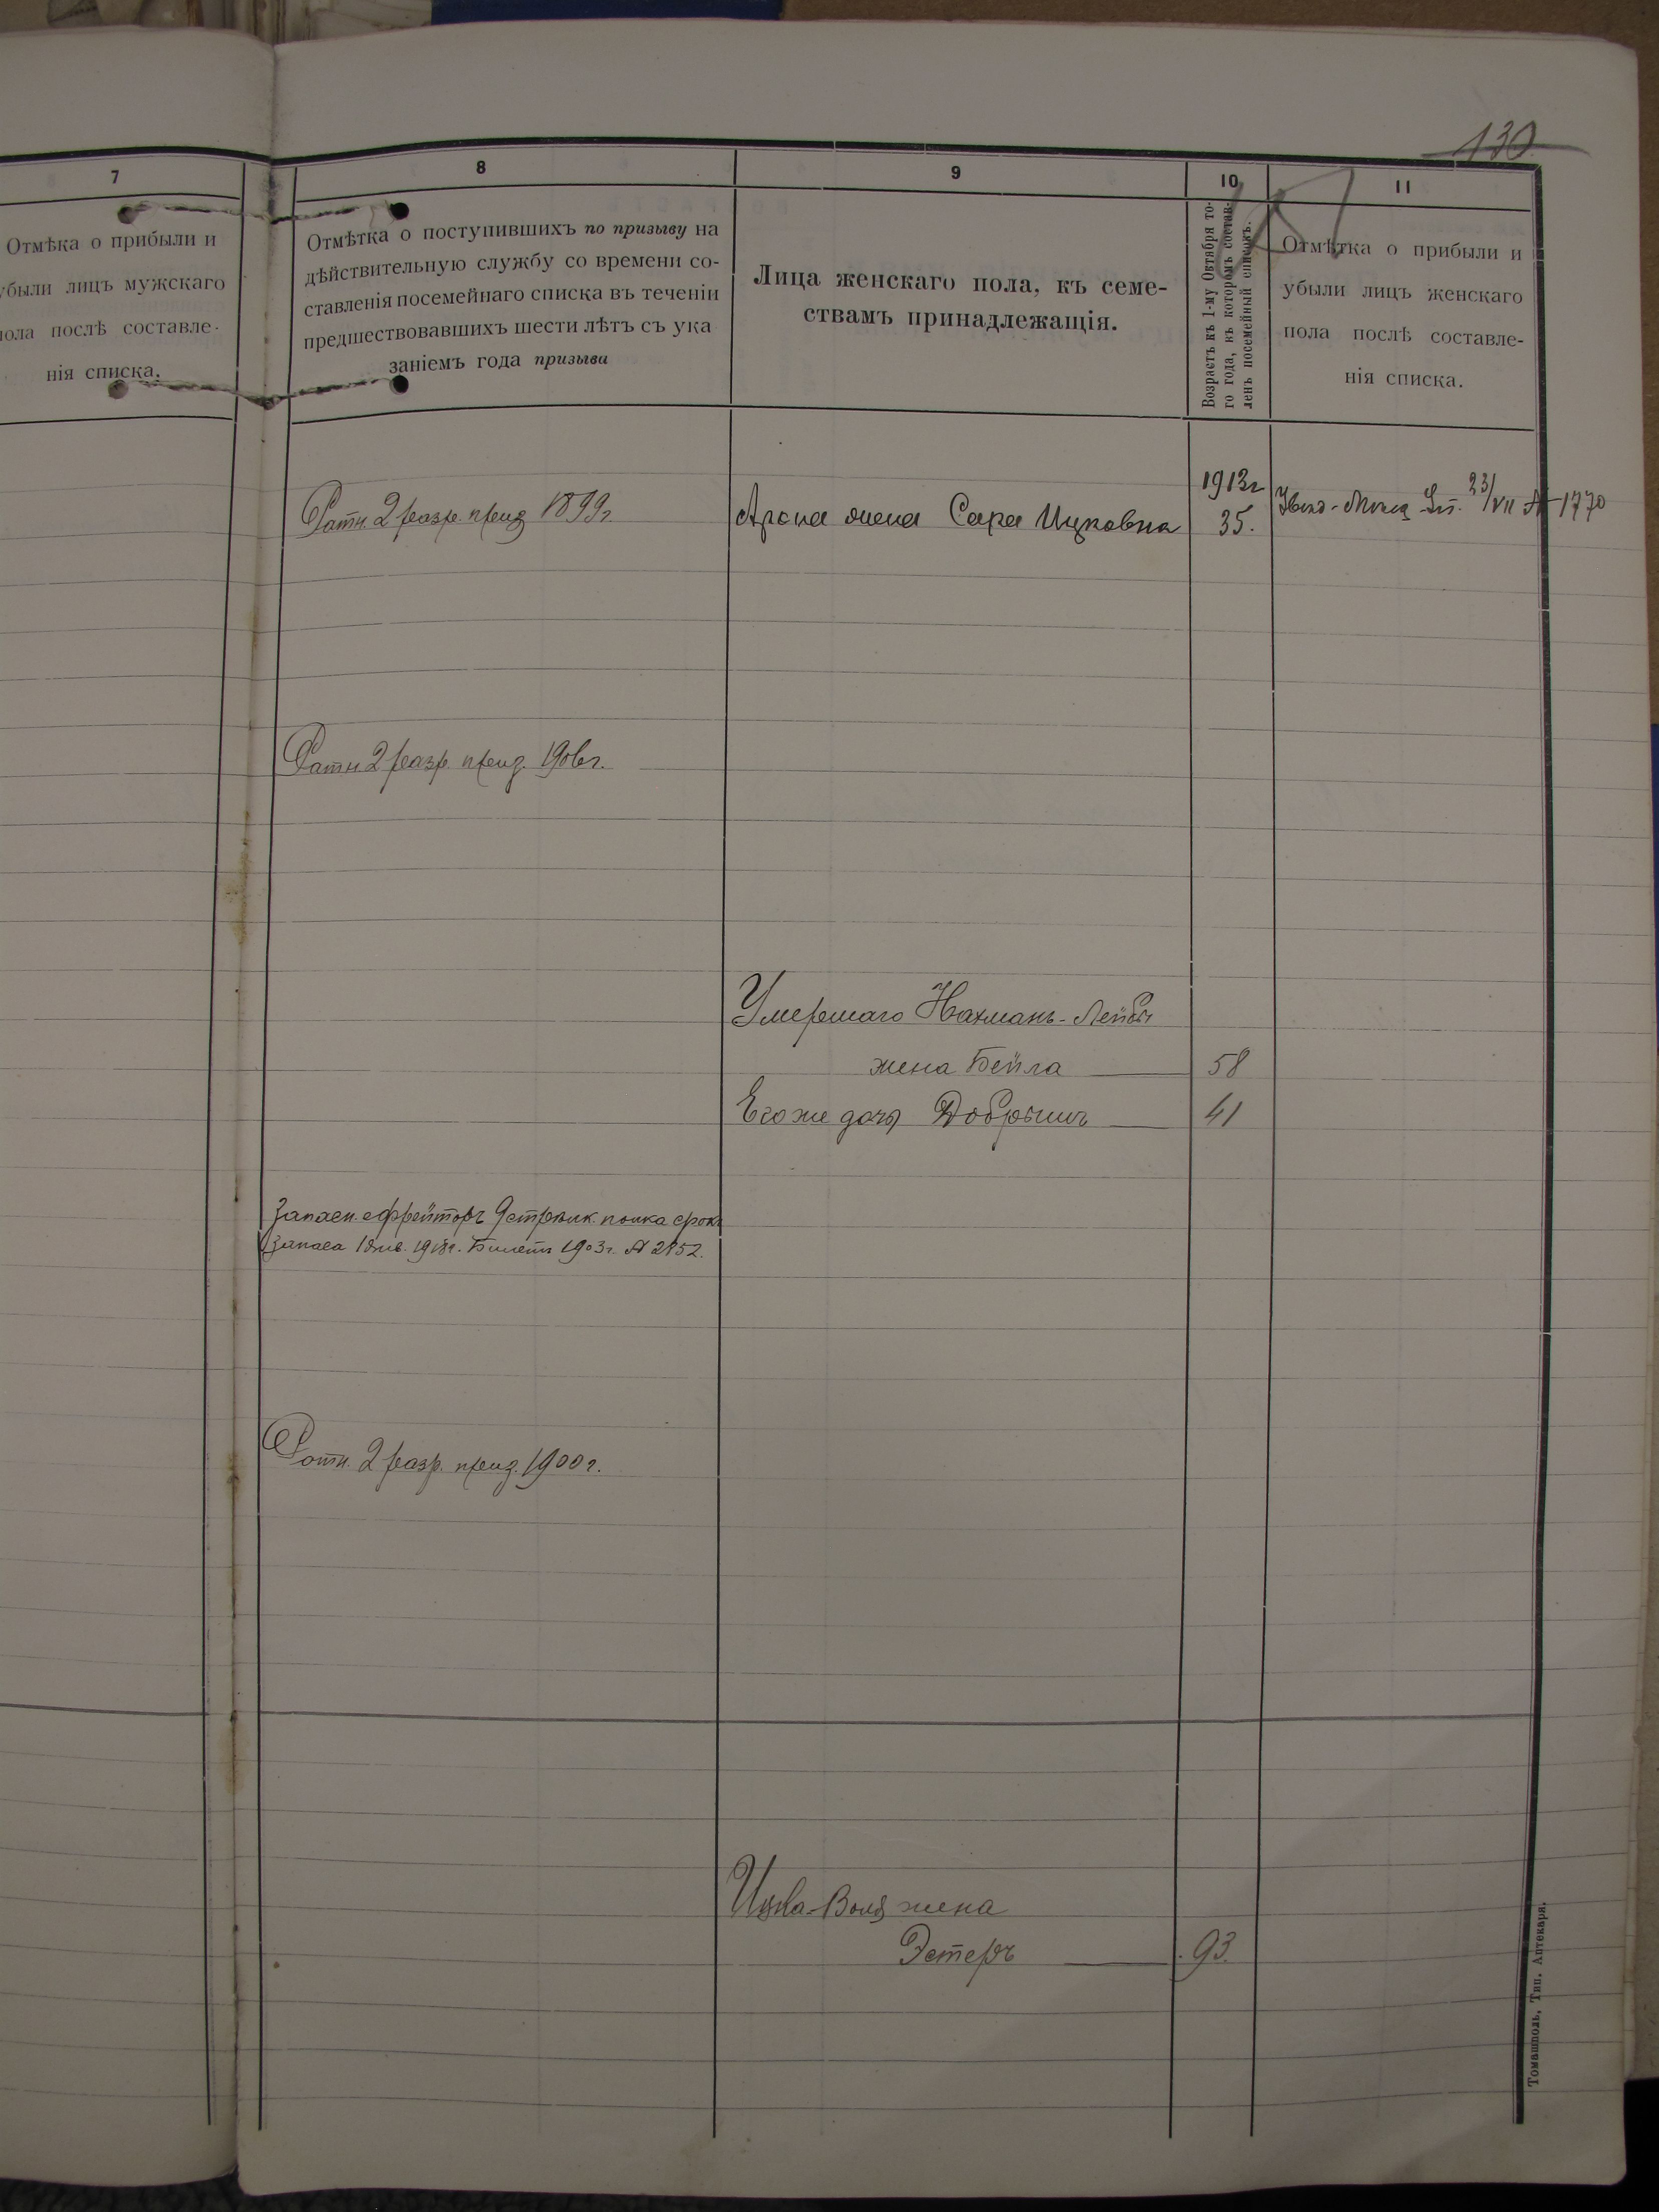 130
7
8
9
10
11
Отмѣка о прибыли и
убыли лицъ мужскаго
пола послѣ составле-
нія списка.
Отмѣтка о поступившихъ по призыву на
дѣйствительную службу со времени со-
ставленія посемейнаго списка въ теченіи
предшествовавшихъ шести лѣтъ съ ука
заніемъ года призыва
Лица женскаго пола, къ семе-
ствамъ принадлежащія.
Возрастъ къ 1-му Октября то-
го года, къ которомъ состав-
ленъ посемейный списокъ.
Отмѣтка о прибыли и
убыли лицъ женскаго
пола послѣ составле-
нія списка.
Ратн. 2 разр. приз 1899г.
Арона жена Сара Ицковна
1913г
35.
23/VII № 1770
Ратн 2 разр. приз. 1906г.
Умершаго Нахманъ-Лейбы
жена Бейла 58
Его же дочь Добрышъ 41
Запасн. ефрейторъ 9 стрѣлк. полка срокъ
запаса 1 янв. 1918г. Билетъ 1903г. № 2852.
Ратн. 2 разр. приз. 1900г.
Ицка-Волѣ жена
Эстеръ 93.
Томашполь, Тип. Аптекаря.